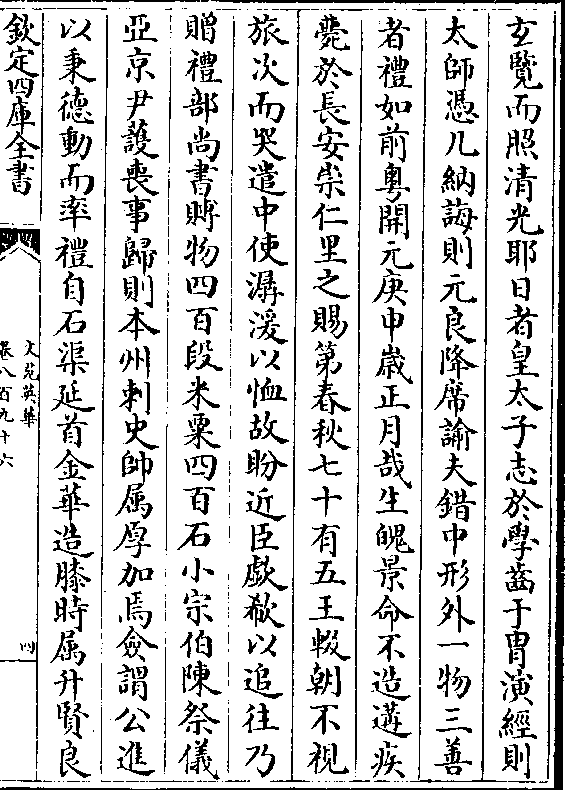 玄覽而照清光耶日者皇太子志於學齒于胄演經則
太師憑几納誨則元良降席諭夫錯中形外一物三善
者禮如前粵開元庚申嵗正月哉生魄景命不造遘疾
薨於長安崇仁里之賜第春秋七十有五王輟朝不視
旅次而哭遣中使潺湲以恤故盼近臣歔欷以追往乃
贈禮部尚書賻物四百段米粟四百石小宗伯陳祭儀
亞京尹護喪事歸則本州刺史帥属厚加焉僉謂公進
以秉德動而率禮自石渠延首金華造膝時属升賢良
欽定四庫全書
文苑英華
卷八百九十六
四